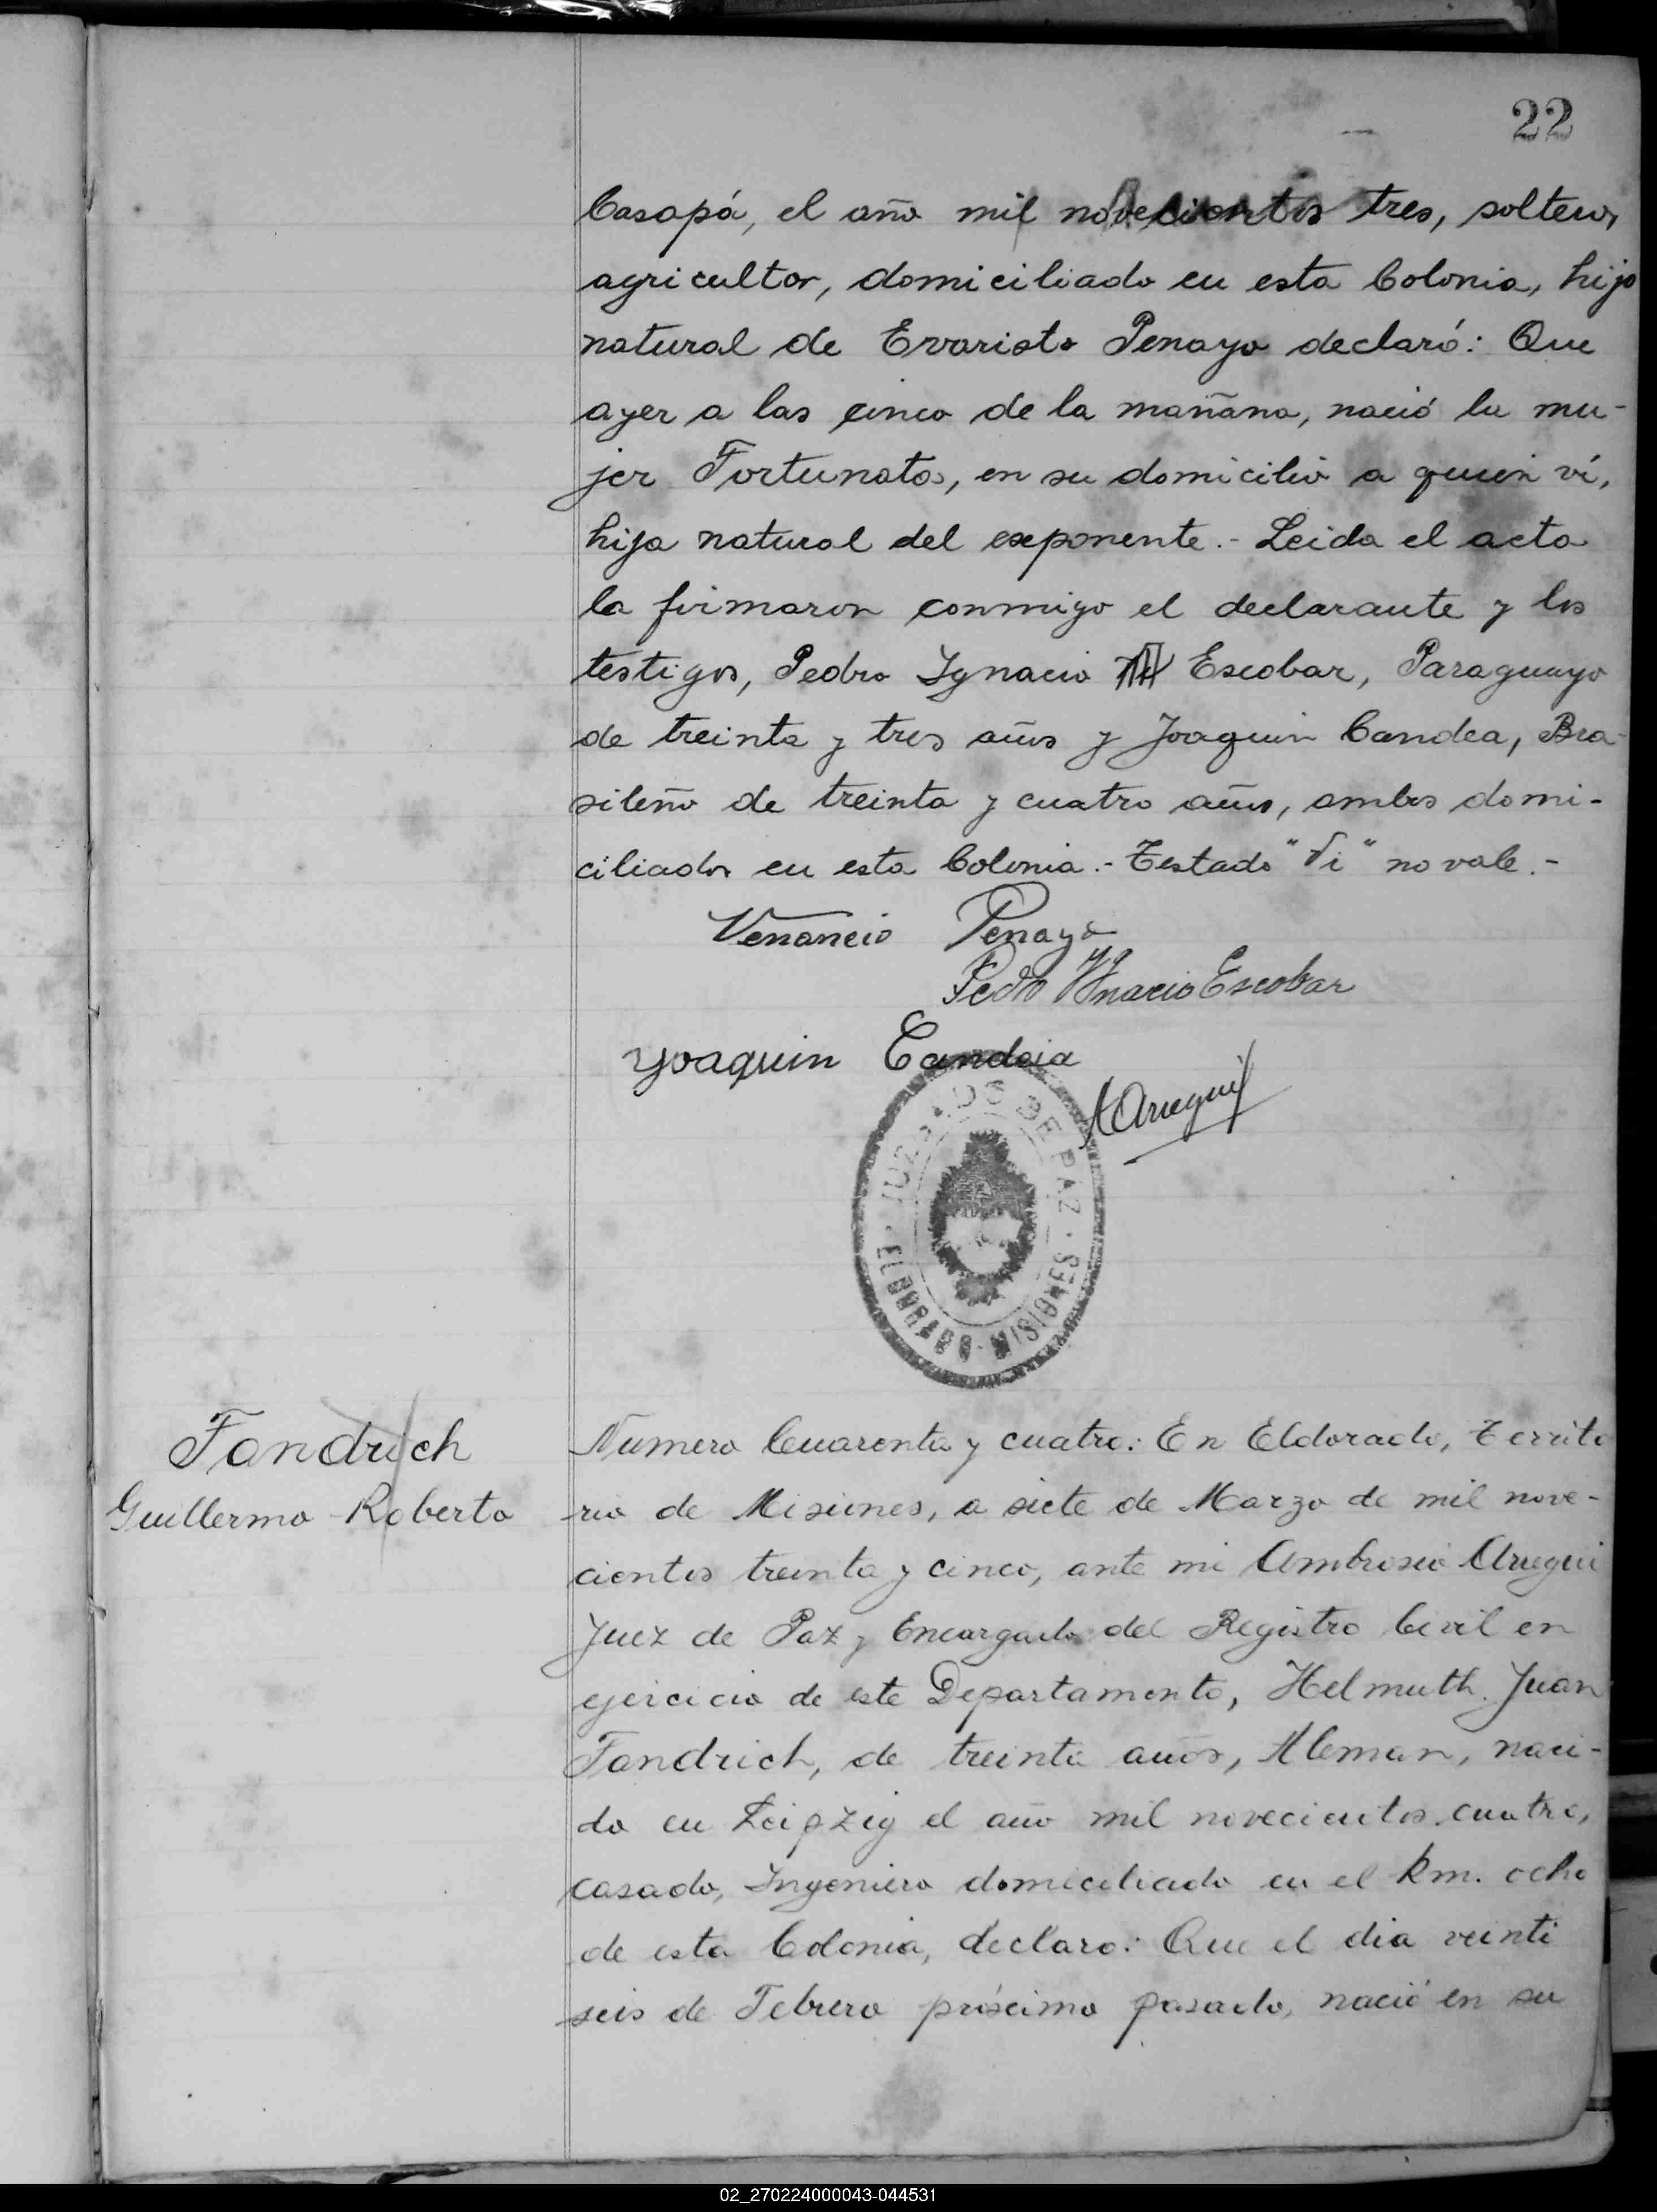 22
Casapá, el año mil novecientos tres, soltero,
agricultor, domiciliado en esta Colonia, hijo
natural de Evaristo Penayo declaró: Que
ayer a las cinco de la mañana, nació la mu-
jer Fortunata, en su domicilio a quien ví,
hija natural del exponente.- Leida el acta
la firmaron conmigo el declarante y los
testigos, Pedro Ygnacio Escobar, Paraguayo
de treinta y tres años y Joaquin Candea, Bra-
sileño de treinta y cuatro años, ambos domi-
ciliados en esta Colonia.- Testado "Vi" no vale.-
Venancio Penayo
Pedro Ygnacio Escobar
Yoaquin Candeia
A Aruegui
JUZGADO DE PAZ
ELDORADO - MISIONES
Fandrich
Guillermo Roberto
Numero Cuarenta y cuatro: En Eldorado, Territo
rio de Misiones, a siete de Marzo de mil nove-
cientos treinta y cinco, ante mi Ambrosio Aruegui
Juez de Paz y Encargado del Registro Civil en
ejercicio de este Departamento, Helmuth Juan
Fandrich, de treinta años, Aleman, naci-
do en Leipzig el año mil novecientos cuatro,
casado, Ingeniero domiciliado en el km. ocho
de esta Colonia, declaro: Que el dia veinti
seis de Febrero próximo pasado, nació en su
02_270224000043-044531